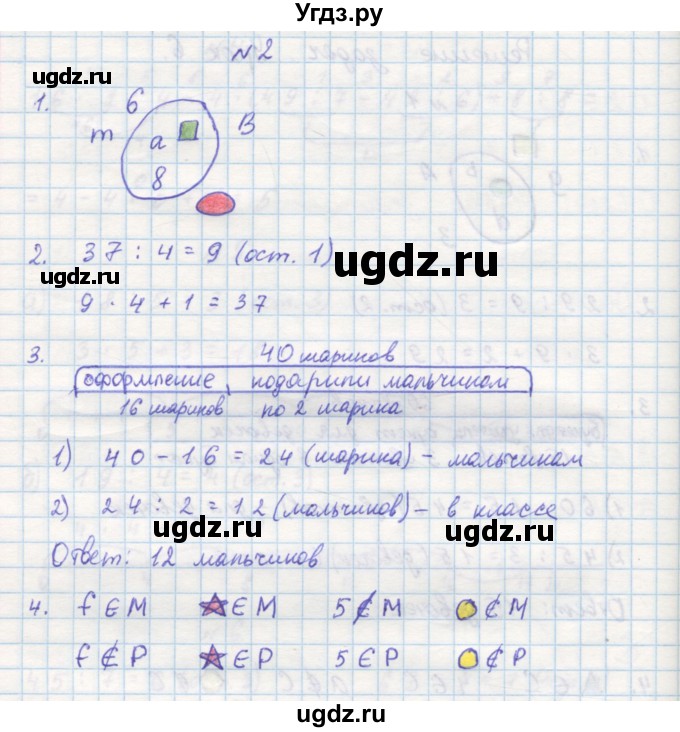 Угдз.ру
№2
1. 6
ugdz.ru
m a B
8
ugdz.ru
2. 37 : 4 = 9 (ост. 1)
ugdz.ru
ugdz.ru
9 · 4 + 1 = 37
3. 40 шариков
оформление, подарили мальчикам
16 шариков по 2 шарика
ugdz.ru
1) 40 - 16 = 24 (шарика) - мальчикам
2) 24 : 2 = 12 (мальчиков) - в классе
ugdz.ru
ugdz.ru
Ответ: 12 мальчиков
4. f ∈ M ∈ M 5 ∉ M ∉ M
f ∉ P ∈ P 5 ∈ P ∉ P
ugdz.ru
ugdz.ru